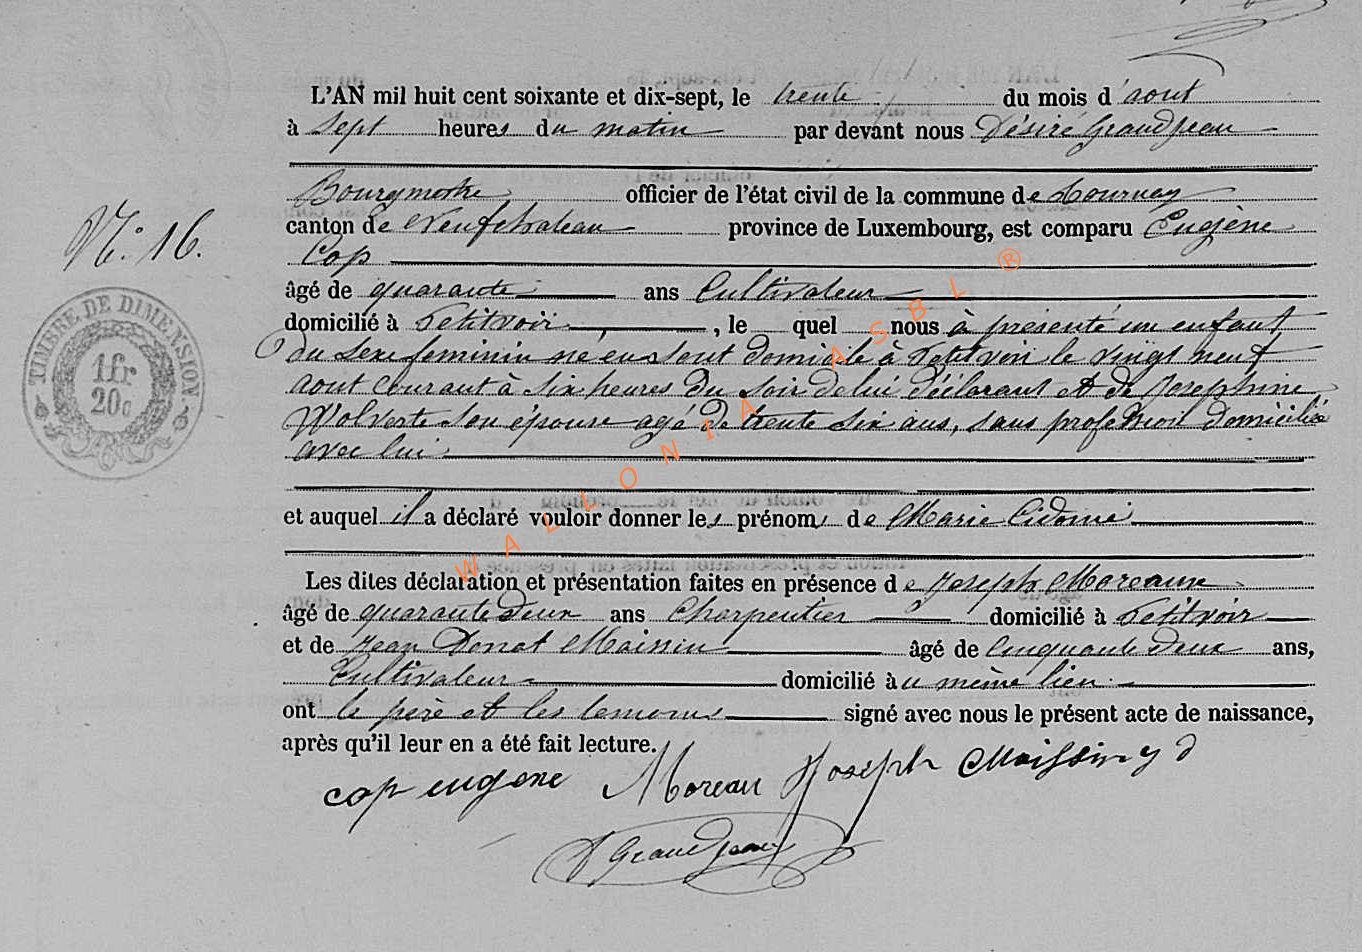 L'AN mil huit cent soixante et dix-sept, le trente du mois d'aout
à sept heures du matin par devant nous Désiré Grandjean
Bourgmestre officier de l'état civil de la commune de Tournay
canton de Neufchateau province de Luxembourg, est comparu Eugène
N°. 16.
Cop
âgé de quarante ans Cultivateur
domicilié à Petitvoir, le quel nous à présenté un enfant
du sexe feminin né en son domicile à Petitvoir le vingt neuf
aout courant à six heures du soir de lui déclarant et de Josephine
Wolverte son épouse agé de trente six ans, sans profession domicilié
avec lui
et auquel il a déclaré vouloir donner les prénoms de Marie Cidonie
Les dites déclaration et présentation faites en présence de Joseph Moreaux
âgé de quarante deux ans Charpentier domicilié à Petitvoir
et de Jean Donat Maissin âgé de Cinquante deux ans,
Cultivateur domicilié au même lieu
ont le père et les temoins signé avec nous le présent acte de naissance,
après qu'il leur en a été fait lecture.
cop eugene Moreau Joseph Maissin j d
D Grandjean
TIMBRE DE DIMENSION
1fr
20c
WALLONIA ASBL ®